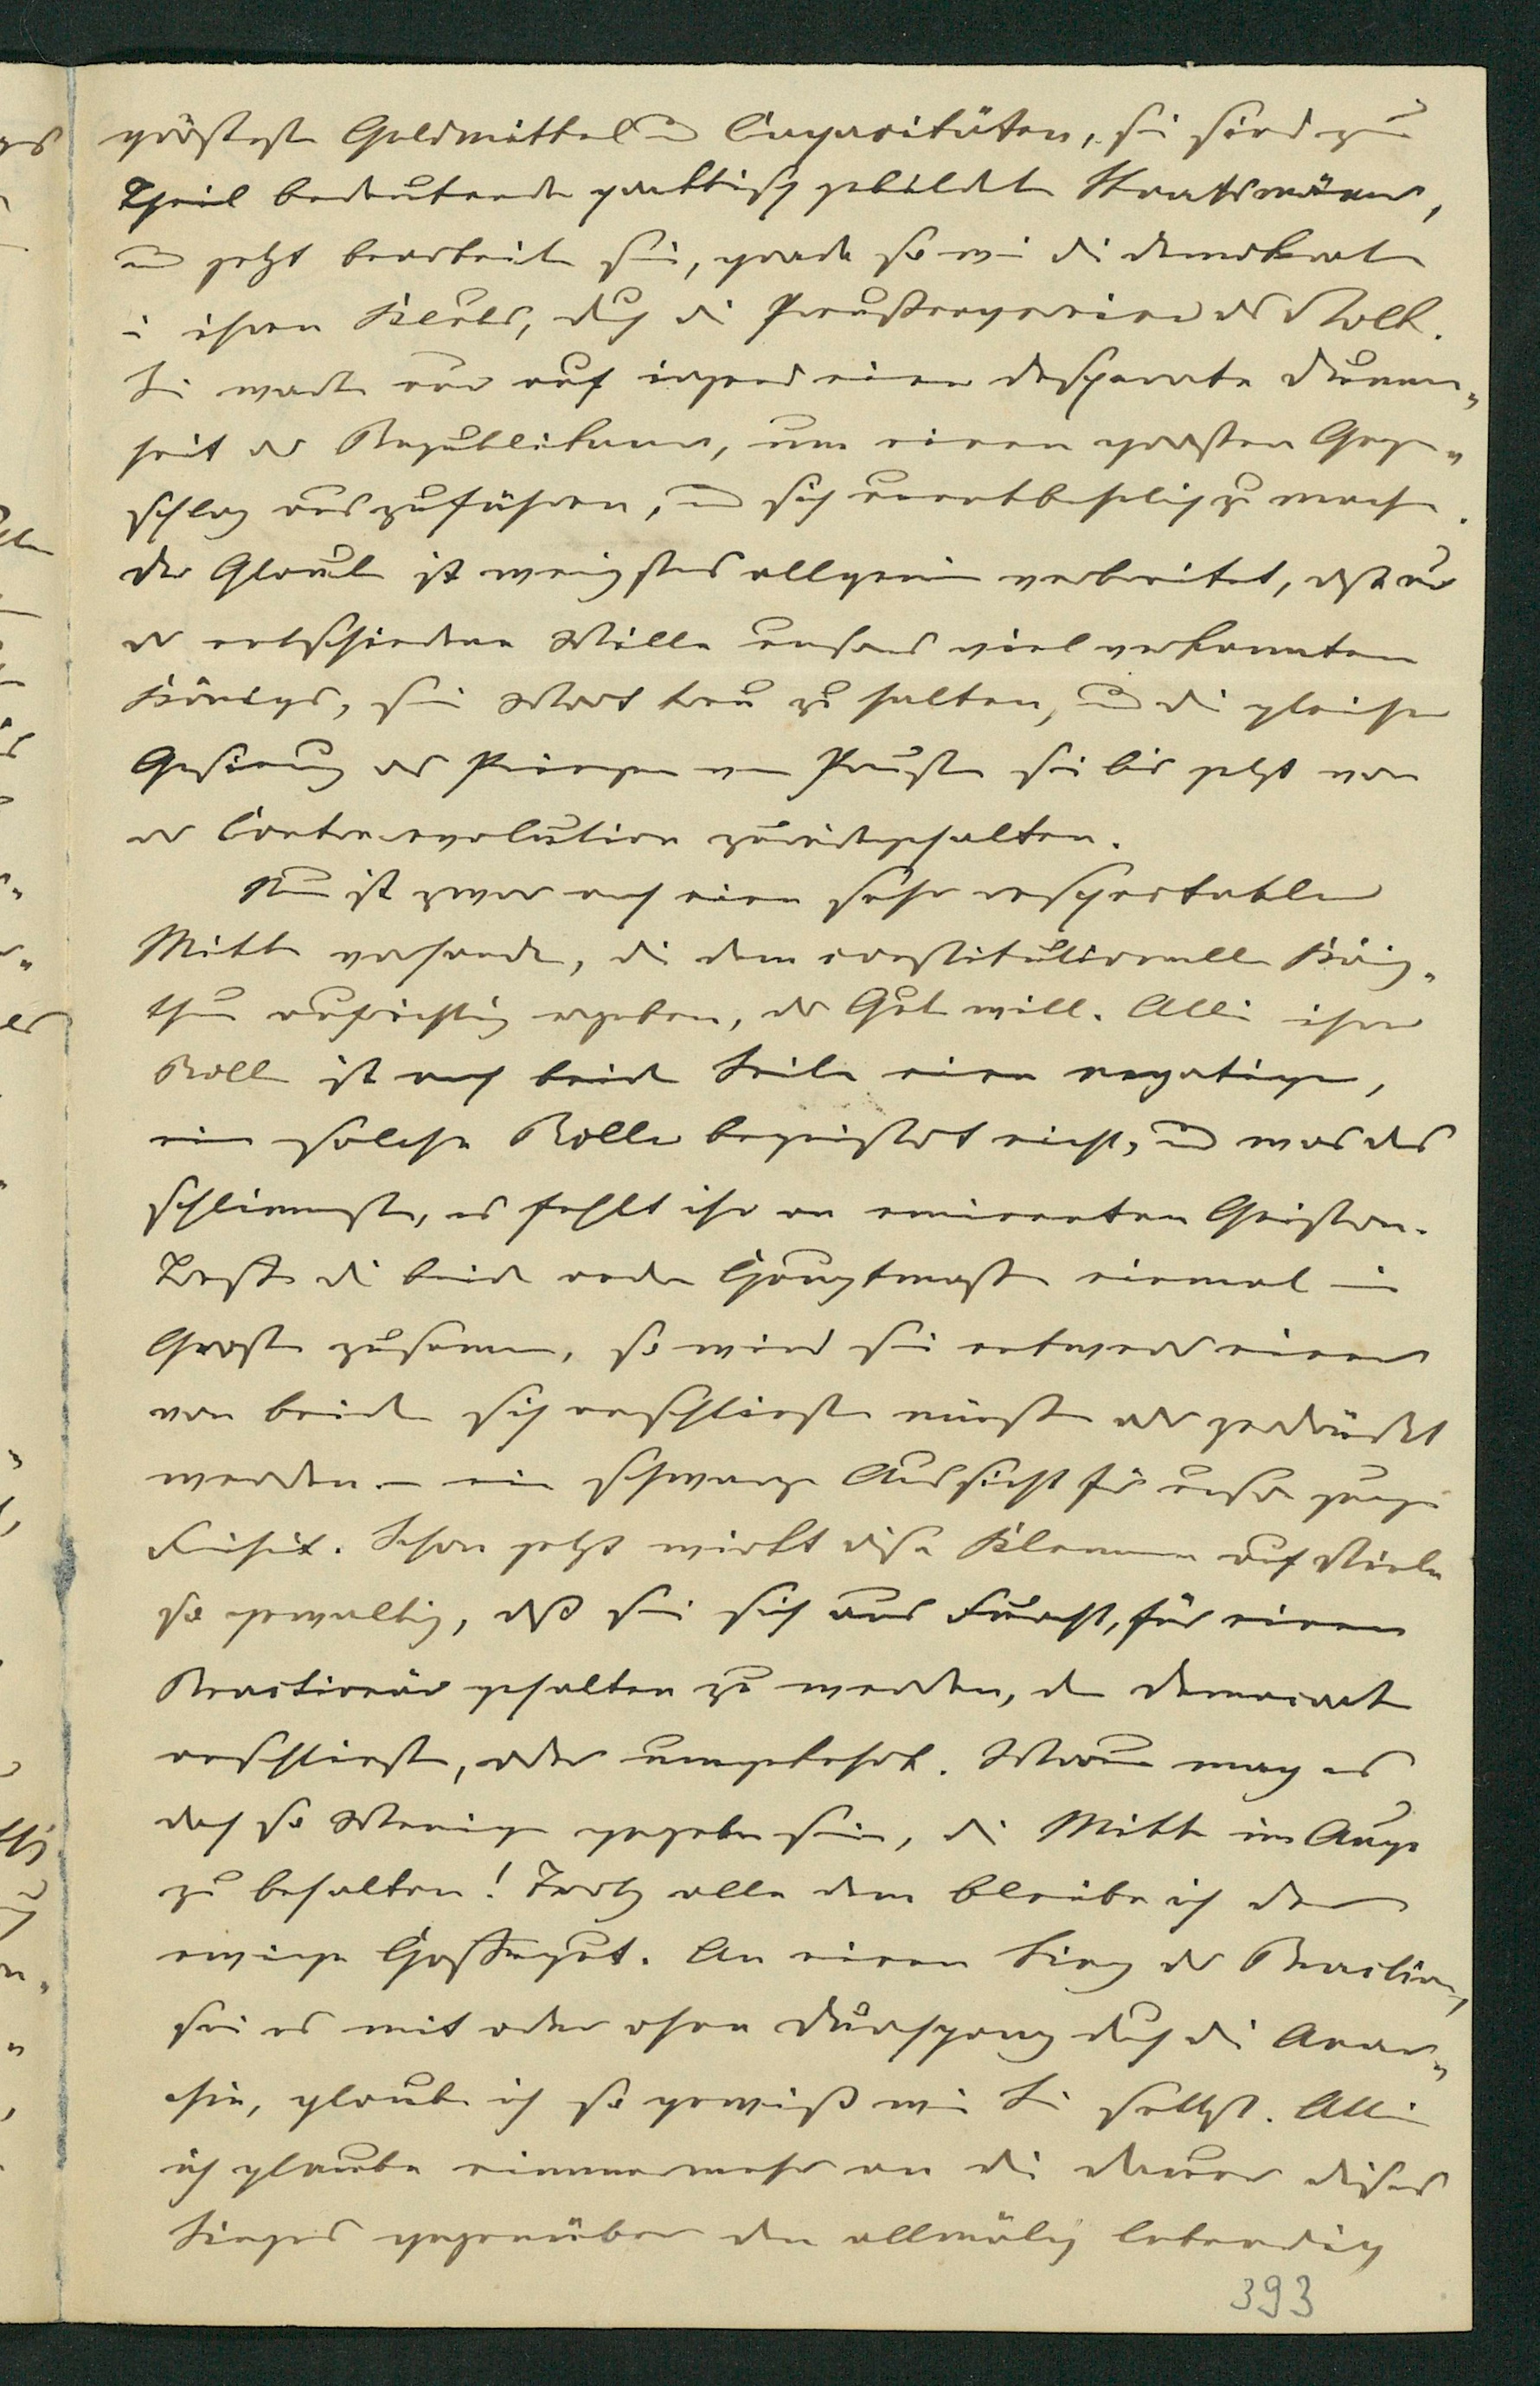 größesten Geldmittel u Capacitäten, sie sind zum
Theil bedeutende praktisch gebildete Staatsmänner,
und jetzt bearbeiten sie, grade so wie die Demokraten
in ihren Klubs, durch die Preußenvereine das Volk.
Sie warten nur auf irgend eine desperate Dumm-
heit der Republikaner, um einen großen Gegen-
schlag auszuführen, und sich unentbehrlich zu machen.
Der Glaube ist wenigstens allgemein verbreitet, daß nur
der entschiedene Wille unsers viel verkannten
Königs, sein Wort treu zu halten, und die gleiche
Gesinnung des Prinzen von Preußen sie bis jetzt von
der Contrerevolution zurückgehalten.
Nun ist zwar auch eine sehr respectable
Mitte vorhanden, die dem constitutionellen König-
thum aufrichtig ergeben, das Gute will. Allein ihre
Rolle ist nach beiden Seiten eine negative,
eine solche Rolle begeistert nicht, und was das
schlimmste, es fehlt ihr an eminenten Geistern.
Treffen die beiden andern Hauptmassen einmal im
Großen zusammen, so wird sie entweder einer
von beiden sich anschließen müssen oder zerdrückt
werden – eine schwarze Aussicht für unsre junge
Freiheit. Schon jetzt wirkt diese Klemme auf Viele
so gewaltig, daß sie sich aus Furcht, für einen
Reactionär gehalten zu werden, den Democraten
anschließen, oder umgekehrt. Warum mag es
doch so Wenigen gegeben sein, die Mitte im Auge
zu behalten! Trotz alle dem bleibe ich der
ewige Hoffegut. An einen Sieg der Reaction,
sei es mit oder ohne Durchgang durch die Anar-
chie, glaube ich so gewiß wie Sie selbst. Allein
ich glaube nimmermehr an die Dauer dieses
Sieges gegenüber den allmälig lebendig
393